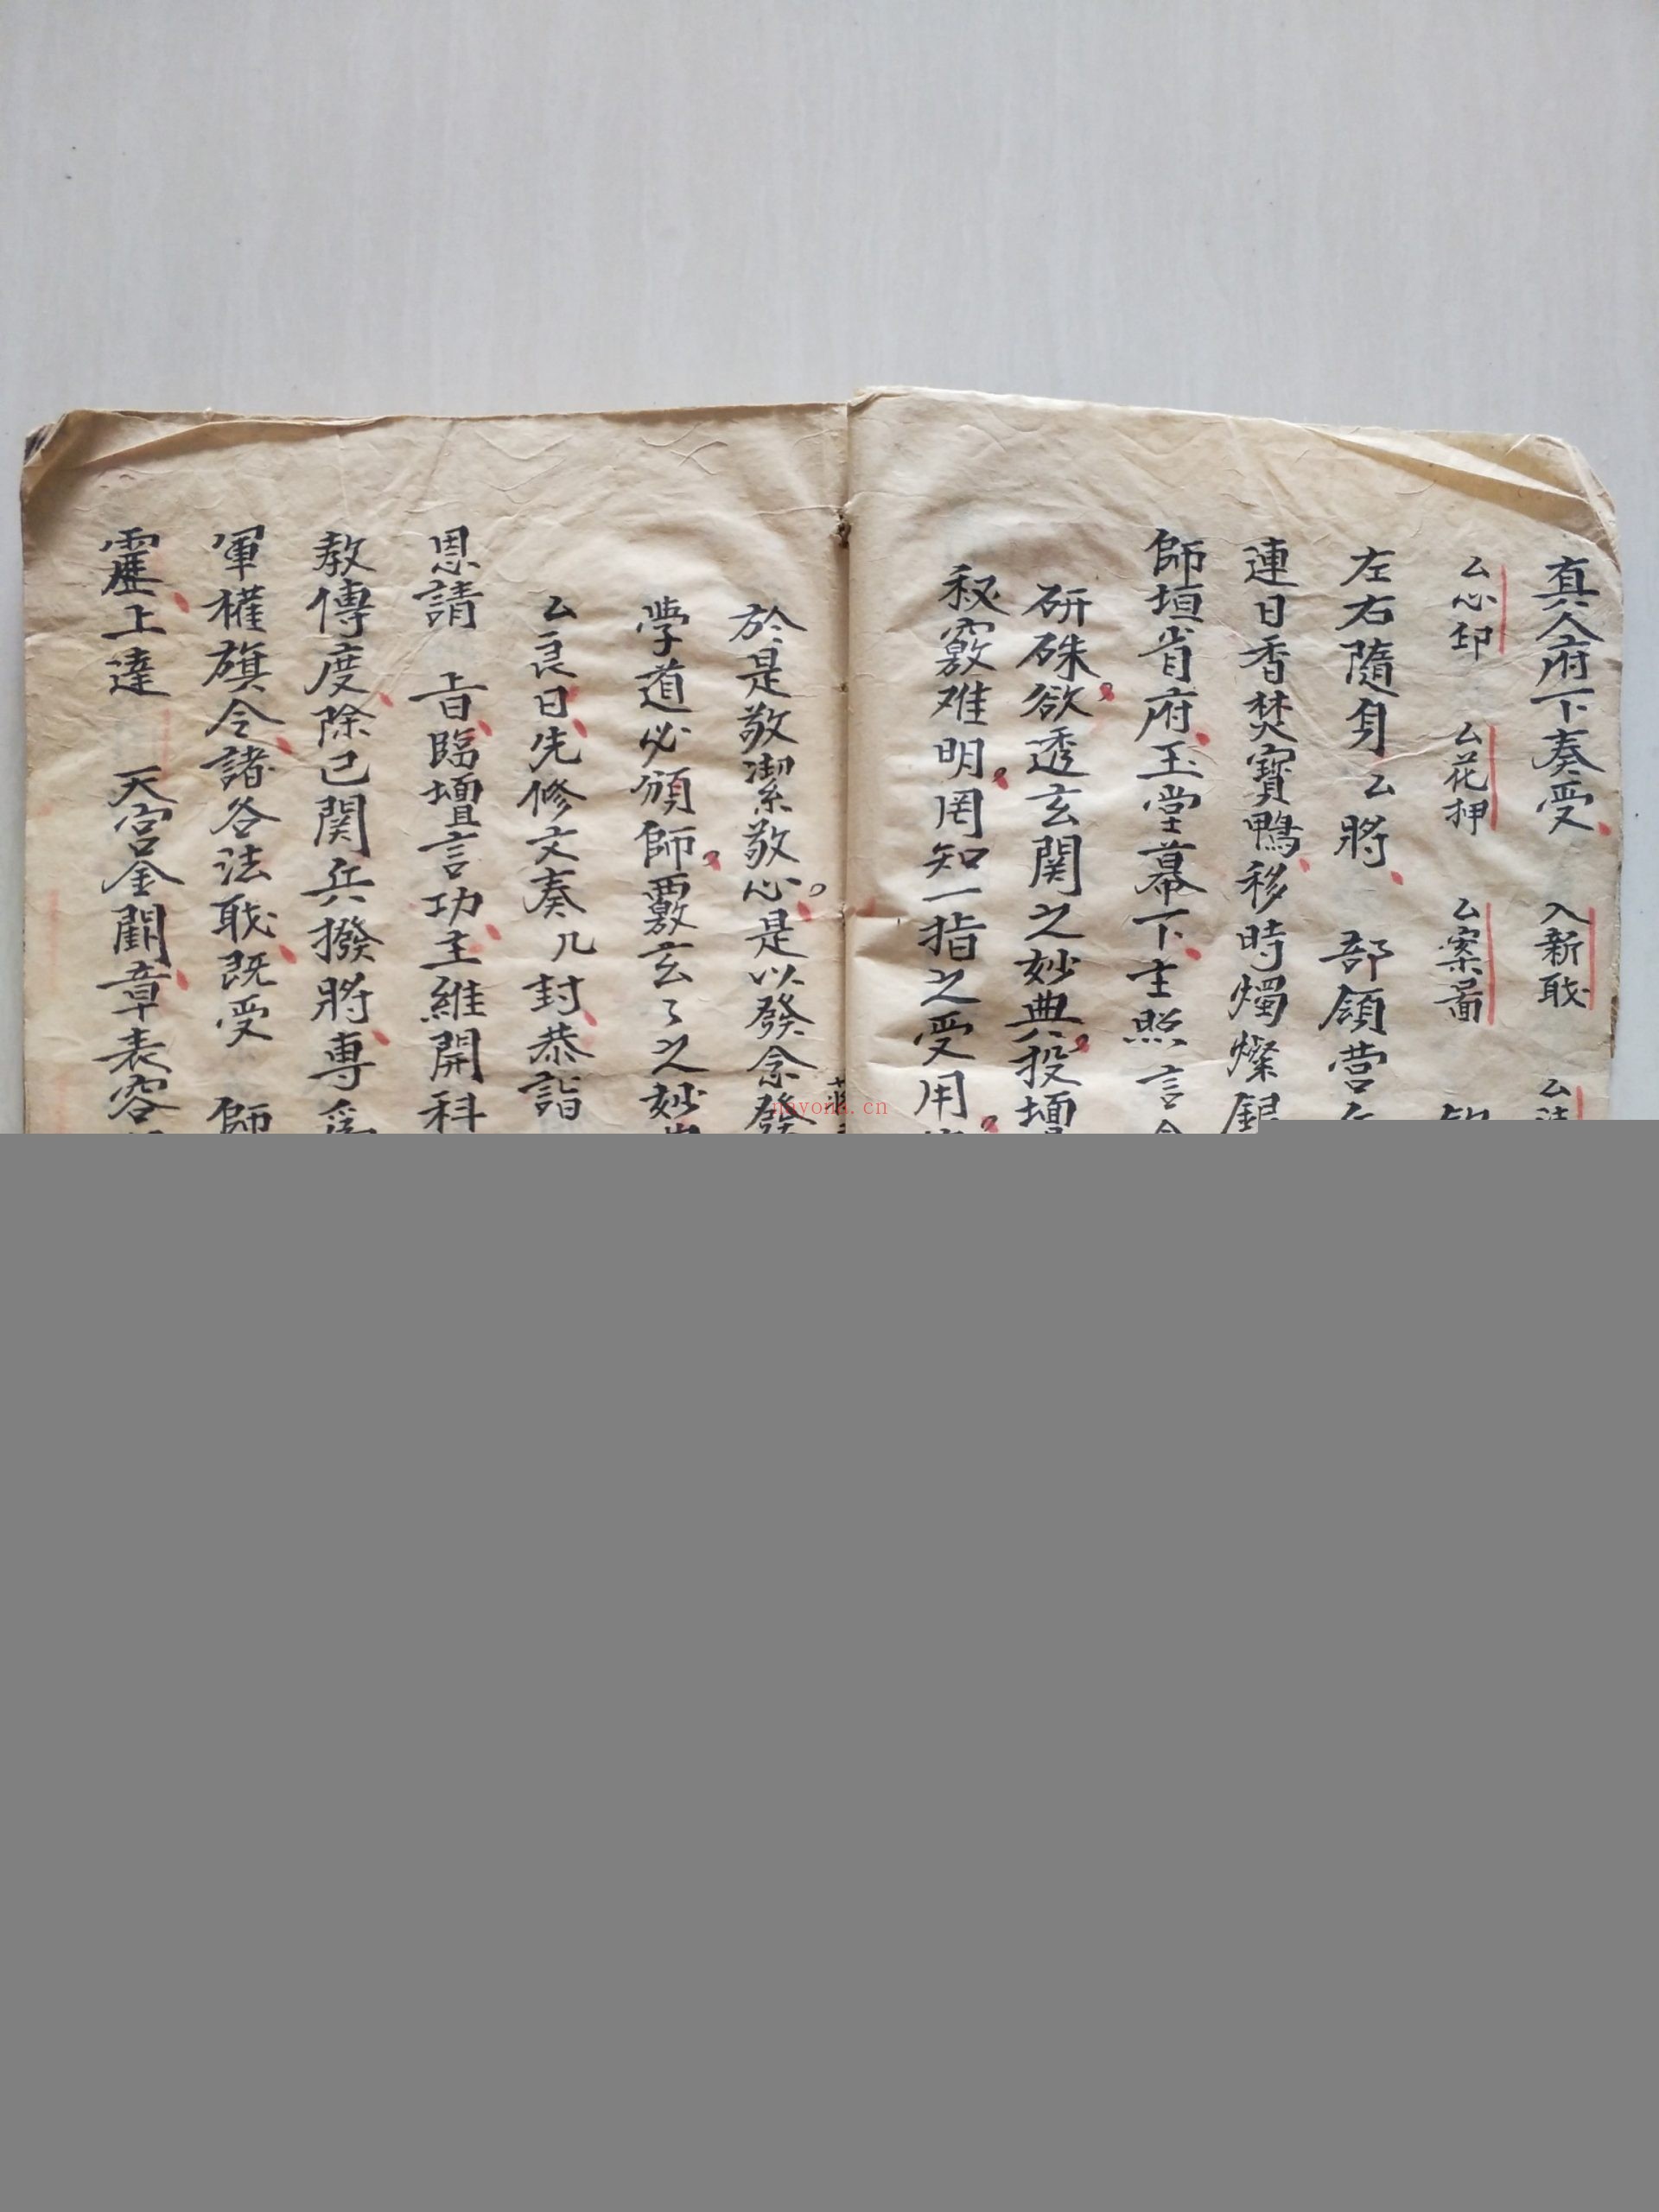 真人府下奏受 入新耺 厶法
厶心印 厶花押 厶案畐
左右隨身厶將 部領营
連日香焚寶鴨移時燭燦銀
師垣省府玉堂幕下主照 言念
研硃欲透玄関之妙典投壇
秘竅难明罔知一指之受用
於是敬潔敬心是以發念發
學道必頒師覈玄々之妙
厶良日先修文奏几封恭詣
恩請 上旨臨壇言功主維開科
教傳度除已関兵撥將專爲
軍權旗令諸各法耺既受 師
上達 天宫金闕章表容
nayona.cn